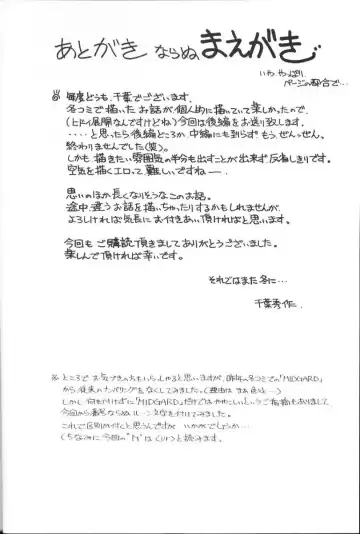 あとがき ならぬ まえがき
いや、やっぱり
ページの都合で…
※ 毎度どうも、千葉でございます。
冬コミで描いたお話が個人的に描いていて楽しかったので、
(ヒドイ展開なんですけどね) 今回は後編をお送り致します。
・・・・と思ったら後編どころか中編にも到らず もう、ぜんっぜん。
終わりませんでした(笑)。
しかも描きたい雰囲気の半分も出すことが出来ず反省しきりです。
空気を描くエロって難しいですね―――.
思いのほか長くなりそうなこのお話。
途中、違うお話を描いちゃったりするかもしれませんが、
よろしければ気長にお付きあい頂ければと思います。
今回も ご購読頂きましてありがとうございました。
楽しんで頂ければ幸いです。
それではまた冬に…
千葉秀作.
※ ところで お気づきの方もいらっしゃると思いますが、昨年の冬コミでの「MIDGARD」
から、従来のナンバリングをなくしてみました。(理由はまぁ色々と…)
しかし何も付けずに「MIDGARD」だけではややこしいというご指摘もありまして
今回から番号ならぬルーン文字を付けてみました。
これで区別が付くと思うんですが いかがでしょうか…
(ちなみに今回の" "は くりっ と読みます。